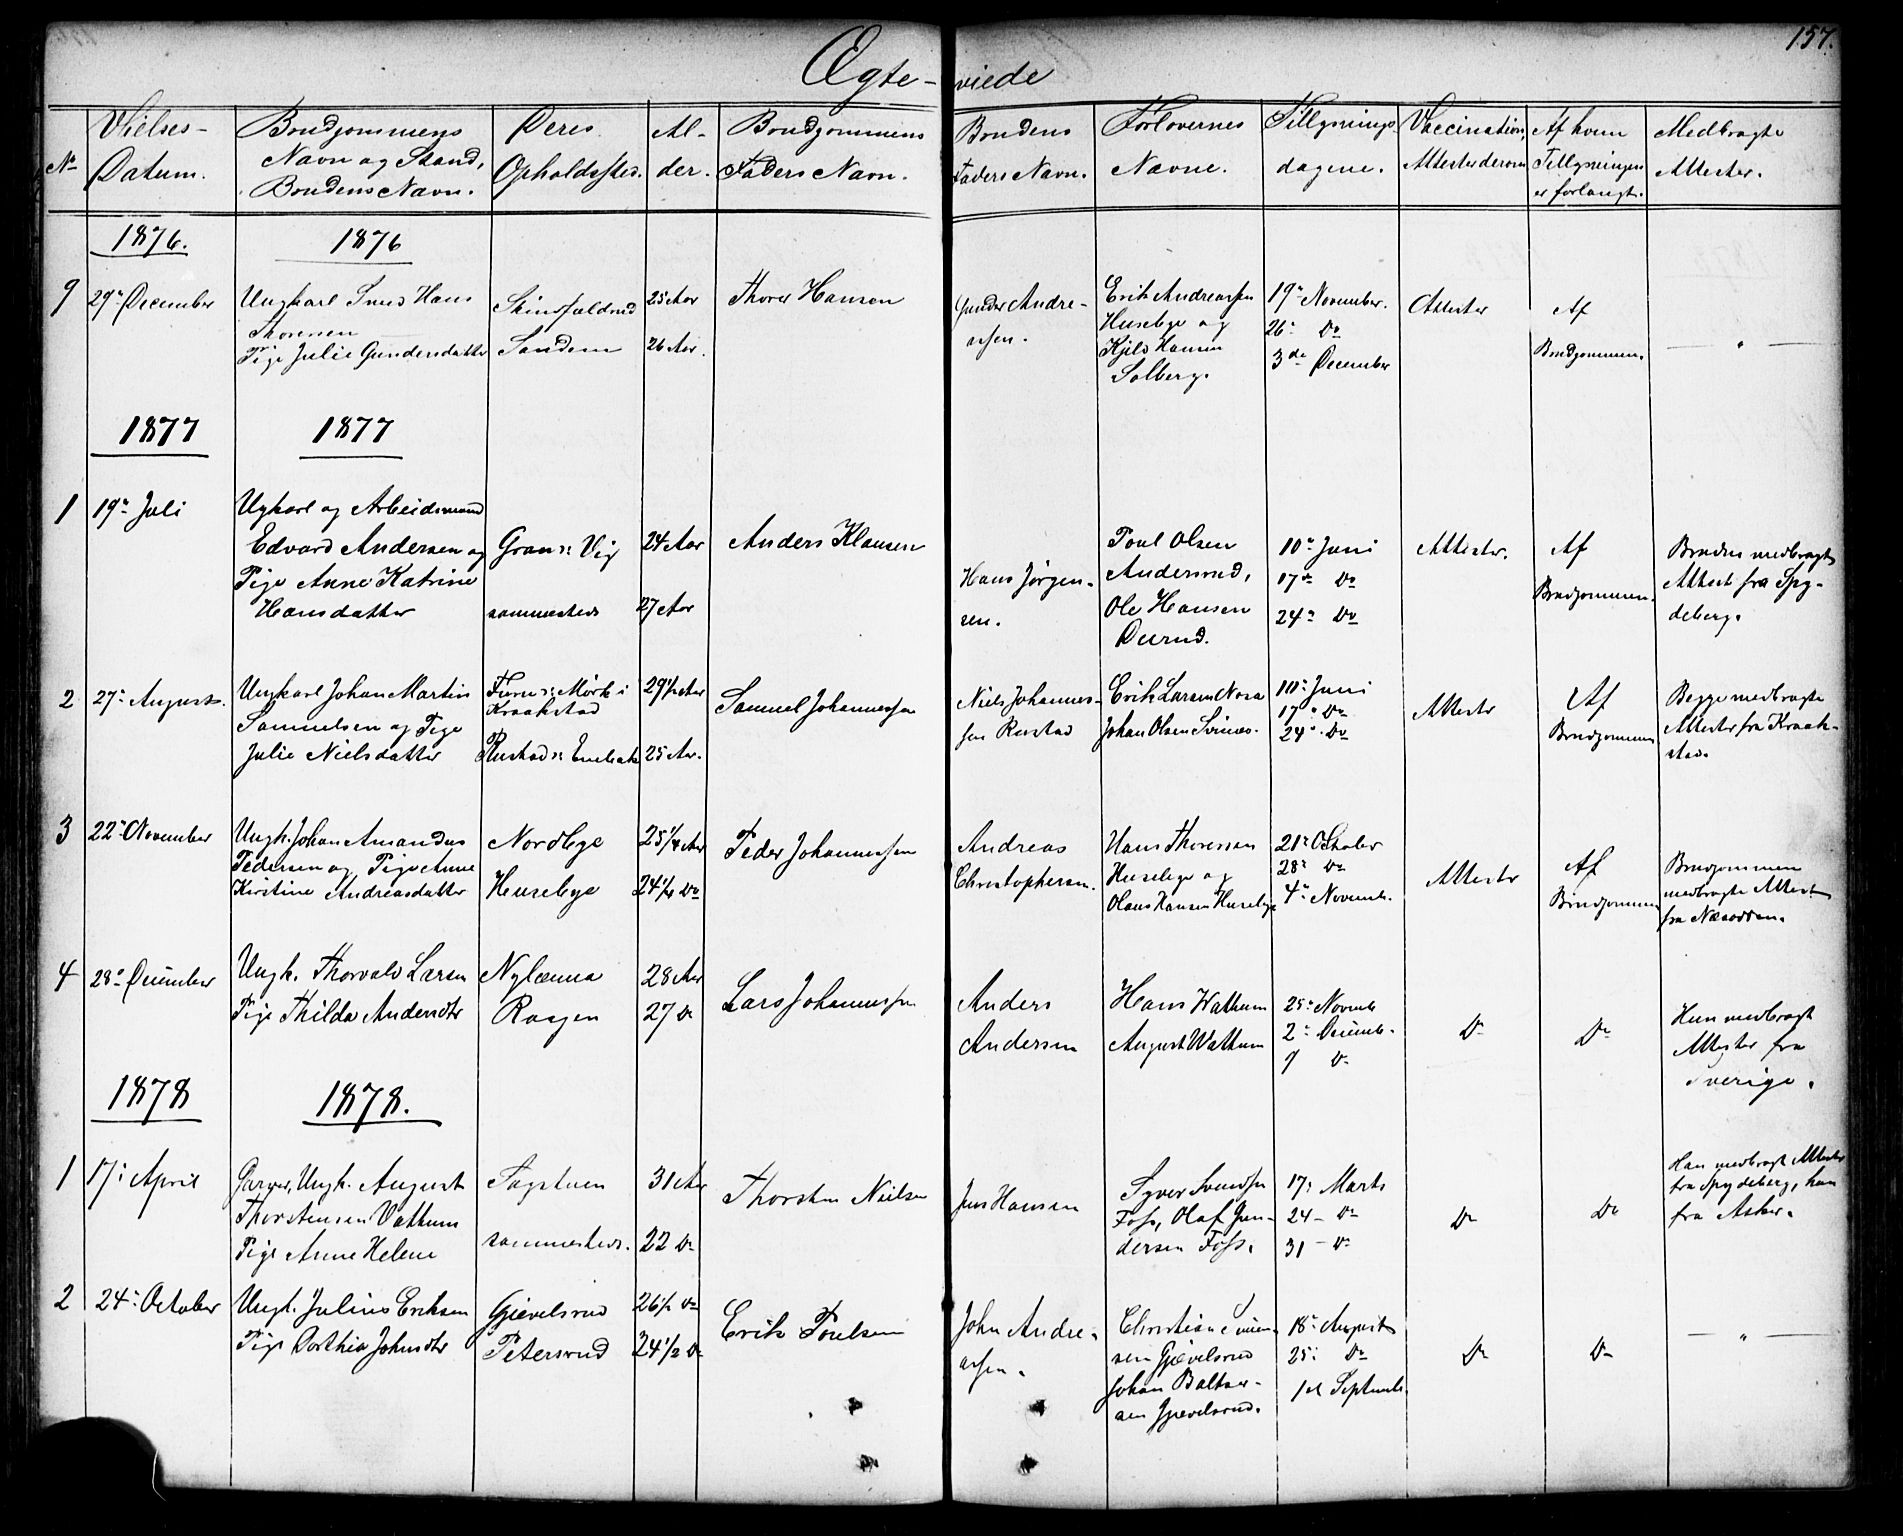 157.
Ægte-viede
No
Vielses-
Datum.
Brudgommens
Navn og Stand,
Brudens Navn.
Deres
Opholdssted.
Al-
der.
Brudgommens
Faders Navn.
Brudens
Faders Navn.
Forlovernes
Navne.
Tillysnings
dagene.
Vaccination,
Attester derom
Af hvem
Tillysningen
er forlangt.
Medbragte
Attester.
1876. 1876
9 29de December
Ungkarl Hans
Thoresen
Pige Julie Gundersdatter
Sandem
25 Aar
26 Aar.
Thorer Hansen
Gunder Andre-
asen.
Erik Andreassen
Husebye og
Kjeld Hansen
Solberg.
19de November.
26de Do
3de December
Attester
Af
Brudgommen.
— " —
1877 1877
1 19de Juli
Ugkarl og Arbeidsmand
Edvard Andersen og
Pige Anne Katrine
Hansdatter
Gran v: Vig
sammesteds
24 Aar
27 Aar
Anders Klausen
Hans Jørgen-
sen.
Poul Olsen
Andersrud,
Ole Hansen
10de Juni
17de Do
24de Do
Attester.
Af
Brudgommen.
Bruden medbragte
Attest fra Spy-
deberg.
2 27de August.
Ungkarl Johan Martin
Samuelsen og Pige
Julie Nielsdatter
Furu v: Mørk i
Kraakstad
Rustad v: Enebak
29 1/2 Aar
25 Aar.
Samuel Johannessen
Niels Johannes-
sen Rustad
Erik Larsen
Johan Olsen
10de Juni
17de Do
24de Do
Attester
Af
Brudgommen
Begge medbragte
Attester fra Kraak-
stad.
3 22de November
Ungk. Johan Amandus
Pedersen og Pige Anne
Kirstine Andreasdatter
Nordbye
Husebye
25 1/4 Aar
24 1/4 Do
Peder Johannessen
Andreas
Christophersen.
Hans Thoressen
Husebye og
Olaus Hansen Husebye
21de October
28de Do
4de Novemb.
Attester
Af
Brudgommen
Brudgommen
medbragte Attest
fra Næsodden.
4 28de December
Ungk. Thorvald Larsen
Pige Thilda Andersdtr
Nylænna
Raagen
28 Aar
27 Do
Lars Johannessen
Anders
Andersen
Hans Wathum
August Wathum
25de Novemb
2de Decemb.
9 Do
Do
Do
Hun medbragt
Attester fra
Sverige.
1878 1878.
1 17de April
Garver, Ungk. August
Thorstensen Vathum
Pige Anne Helene
Fagstuen
sammesteds.
31 Aar
22 Do
Thorsten Nielsen
Jens Hansen
Syver Svendsen
Foss, Olaf Gun-
dersen Foss.
17de Marts
24 - Do
31 - Do
Do
Do
Han medbragt Attester
fra Spydeberg, hun
fra Asker.
2 24de October
Ungk. Julius Eriksen
Pige Dorthia Johnsdtr
Gjevelsrud
Petersrud
26 1/2 Do
24 1/2 Do
Erik Poulsen
John Andre-
asen.
Christian
sen Gjevelsrud
Johan Baltser-
sen Gjevelsrud.
18de August
25de Do
1st Septemb.
Do
Do
— " —